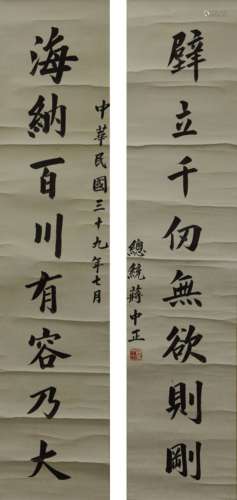 海納百川有容乃大
中華民國三十九年七月
壁立千仞無欲則剛
總統蔣中正